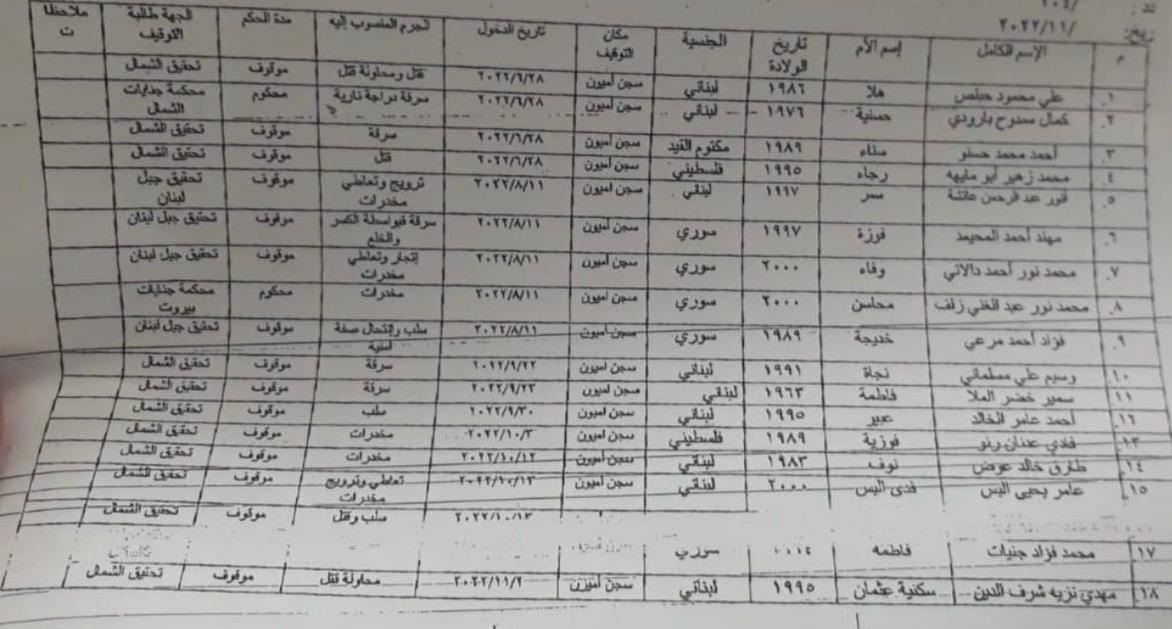 ٢٠٢٢/١١/
م الإسم الكامل إسم الأم تاريخ الولادة الجنسية مكان التوقيف تاريخ الدخول الجرم المنسوب إليه مدة الحكم الجهة طالبة التوقيف ملاحظات
١. علي محمود حبلص هلا ١٩٨٦ لبناني سجن أميون ٢٠٢٢/٦/٢٨ قتل ومحاولة قتل موقوف تحقيق الشمال
٢. كمال ممدوح بارودي حسنية ١٩٧٦ لبناني سجن أميون ٢٠٢٢/٦/٢٨ سرقة دراجة نارية محكوم محكمة جنايات الشمال
٣. أحمد محمد حسنو سناء ١٩٨٩ مكتوم القيد سجن أميون ٢٠٢٢/٦/٢٨ سرقة موقوف تحقيق الشمال
٤. محمد زهير أبو مايهه رجاء ١٩٩٥ فلسطيني سجن أميون ٢٠٢٢/٦/٢٨ قتل موقوف تحقيق الشمال
٥. عبد الرحمن عائشة سمر ١٩٩٧ لبناني سجن أميون ٢٠٢٢/٨/١١ ترويج وتعاطي مخدرات موقوف تحقيق جبل لبنان
٦. مهند أحمد المحيمد فوزة ١٩٩٧ سوري سجن أميون ٢٠٢٢/٨/١١ سرقة الكسر والخلع موقوف تحقيق جبل لبنان
٧. محمد نور أحمد دالاتي وفاء ٢٠٠٠ سوري سجن أميون ٢٠٢٢/٨/١١ إتجار وتعاطي مخدرات موقوف تحقيق جبل لبنان
٨. محمد نور عبد الغني زلف محاسن ٢٠٠٠ سوري سجن أميون ٢٠٢٢/٨/١١ مخدرات محكوم محكمة جنايات بيروت
٩. فؤاد أحمد مرعي خديجة ١٩٨٩ سوري سجن أميون ٢٠٢٢/٨/١١ سلب وإنتحال صفة أمنية موقوف تحقيق جبل لبنان
١٠. وسيم علي مسلماني نجاة ١٩٩١ لبناني سجن أميون ٢٠٢٢/٩/٢٢ سرقة موقوف تحقيق الشمال
١١ سمير خضر الملا فاطمة ١٩٦٣ لبناني سجن أميون ٢٠٢٢/٩/٢٣ سرقة موقوف تحقيق الشمال
أحمد عامر الخالد عبير ١٩٩٥ لبناني سجن أميون ٢٠٢٢/٩/٣٠ سلب موقوف تحقيق الشمال
١٣ فادي عدنان رنو فوزية ١٩٨٩ فلسطيني سجن أميون ٢٠٢٢/١٠/٣ مخدرات موقوف تحقيق الشمال
١٤. طارق خالد عوض نوف ١٩٨٣ لبناني سجن أميون ٢٠٢٢/١٠/١٢ مخدرات موقوف تحقيق الشمال
١٥. عامر يحيى البس فدى البس ٢٠٠٠ لبناني سجن أميون ٢٠٢٢/١٠/١٣ تعاطي وترويج مخدرات موقوف تحقيق الشمال
٢٠٢٢/١٠/١٣ سلب وقتل موقوف تحقيق الشمال
١٧ محمد فؤاد جنيات فاطمه سوري
١٨. مهدي نزيه شرف الدين سكنية عثمان ١٩٩٥ لبناني سجن أميون ٢٠٢٢/١١/٢ محاولة قتل موقوف تحقيق الشمال